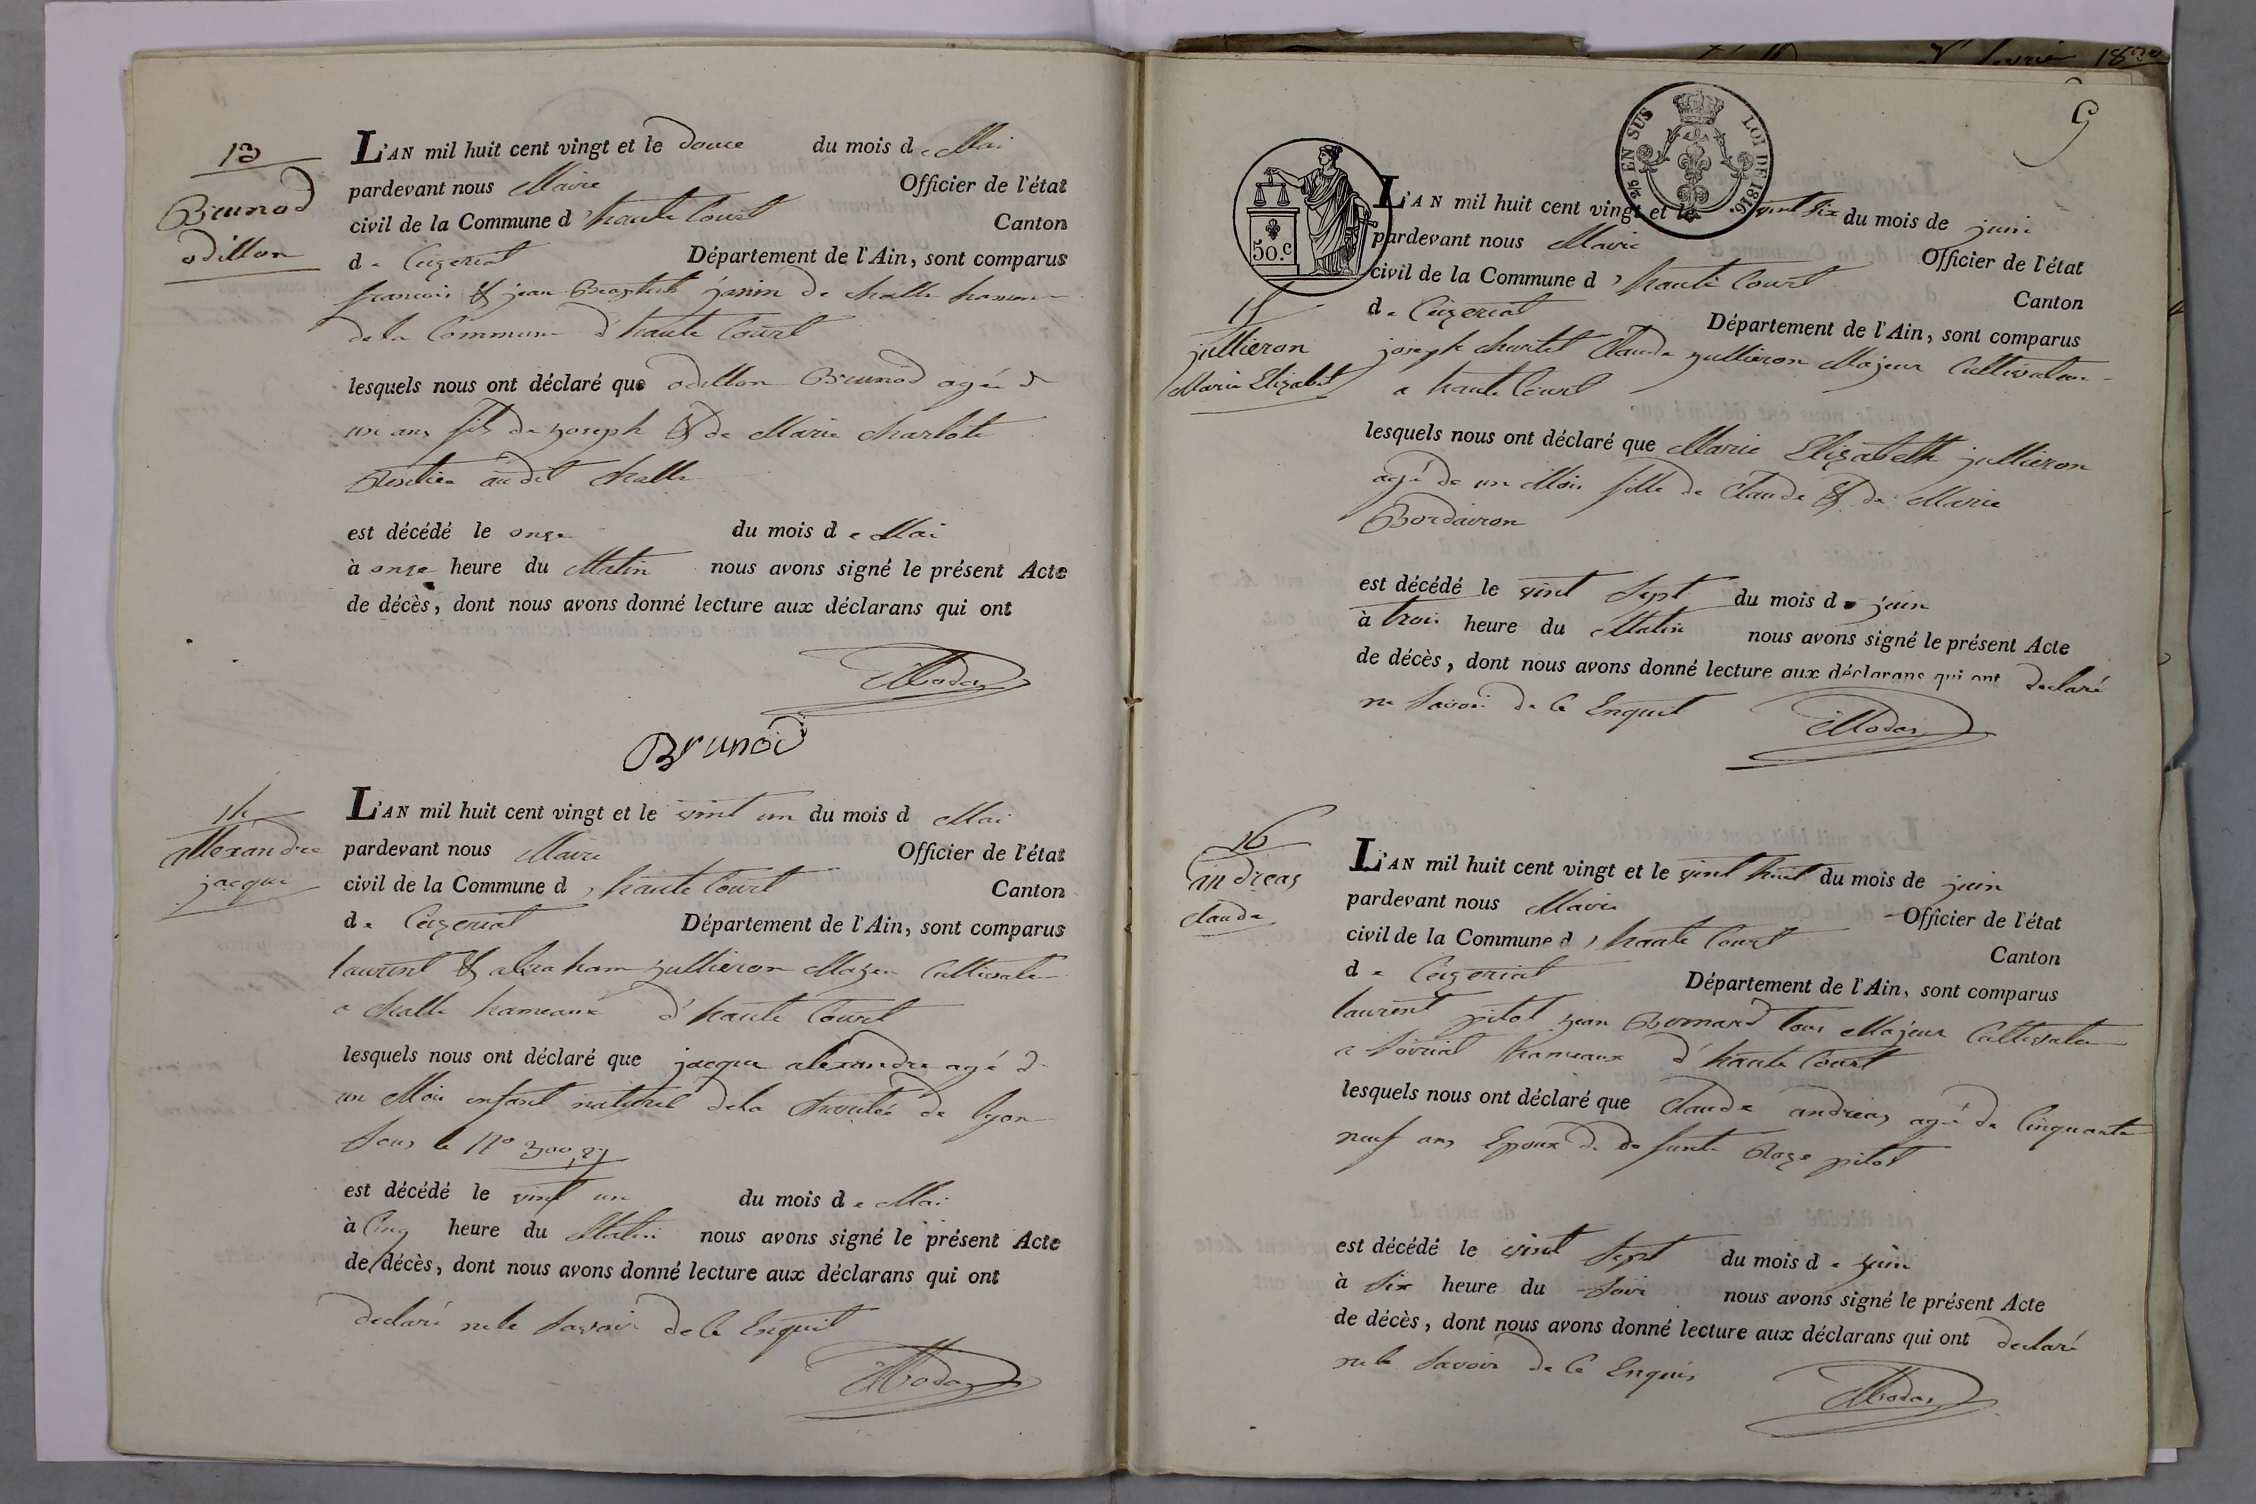 13
Brunod
odillon
L'AN mil huit cent vingt et le douce du mois de Mai
pardevant nous Maire Officier de l'état
civil de la Commune d'haute Court Canton
de Ceÿzeriat Département de l'Ain, sont comparus
francois & jean Baptiste janin de challe hameau
de la Commune d'haute Court
lesquels nous ont déclaré que odillon Brunod agée de
un ans fils de joseph & de Marie charlote
audit challe
est décédé le onze du mois de Mai
à onze heure du Matin nous avons signé le présent Acte
de décès, dont nous avons donné lecture aux déclarans qui ont
Modas
Brunod
14
allexandre
jacque
L'AN mil huit cent vingt et le vint un du mois d Mai
pardevant nous Maire Officier de l'état
civil de la Commune d'haute Court Canton
de Ceÿzeriat Département de l'Ain, sont comparus
laurent & abraham jullieron Majeur Cultivateur
a challe hameaux d'haute Court
lesquels nous ont déclaré que jacque alexandre agé de
un Mois enfant naturel de la charitée de lyon
sous le N°
est décédé le vint un du mois de Mai
à Cinq heure du Matin nous avons signé le présent Acte
de décès, dont nous avons donné lecture aux déclarans qui ont
declaré ne le savoir de ce Enquit
Modas
9
2/5 EN SUS LOI DE 1816.
50.C
15
jullieron
Marie Elizabet
L'AN mil huit cent vingt et le vint six du mois de juin
pardevant nous Maire Officier de l'état
civil de la Commune d'haute Court Canton
de Ceÿzeriat Département de l'Ain, sont comparus
joseph chatel Claude jullieron Majeur Cultivateur
a haute Court
lesquels nous ont déclaré que Marie Elizabeth jullieron
agé de un Mois fille de Claude & de Marie
Bordairon
est décédé le vint sept du mois de juin
à trois heure du Matin nous avons signé le présent Acte
de décès, dont nous avons donné lecture aux déclarans qui ont declaré
ne savoir de ce Enquit
Modas
16
andreas
claude
L'AN mil huit cent vingt et le vint huit du mois de juin
pardevant nous Maire Officier de l'état
civil de la Commune d'haute Court Canton
de Ceÿzeriat Département de l'Ain, sont comparus
laurent pitot jean Bernard tous Majeur Cultivateur
a hameaux d'haute Court
lesquels nous ont déclaré que Claude andreas agé de Cinquante
neuf ans Epoux de defunte Roze pitot
est décédé le vint sept du mois de juin
à six heure du soir nous avons signé le présent Acte
de décès, dont nous avons donné lecture aux déclarans qui ont declaré
ne le savoir de ce Enquis
Modas